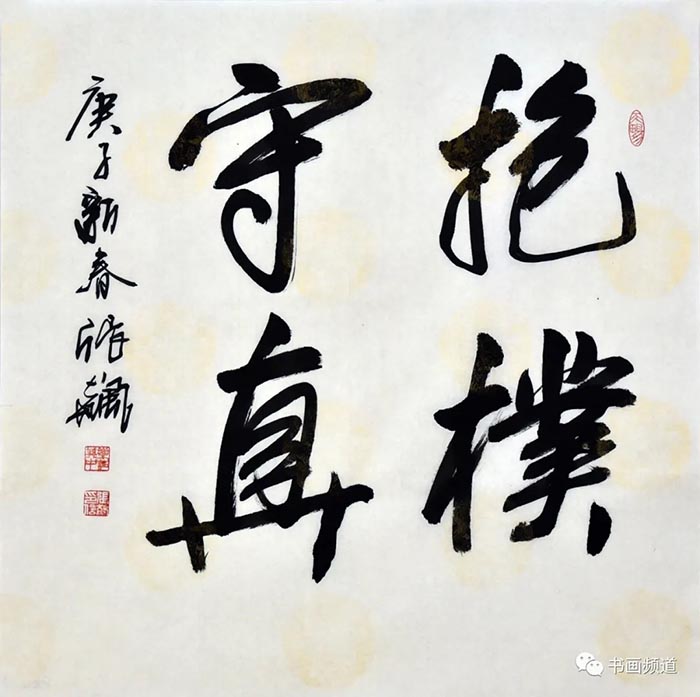 抱樸
守真
庚子新春
书画频道